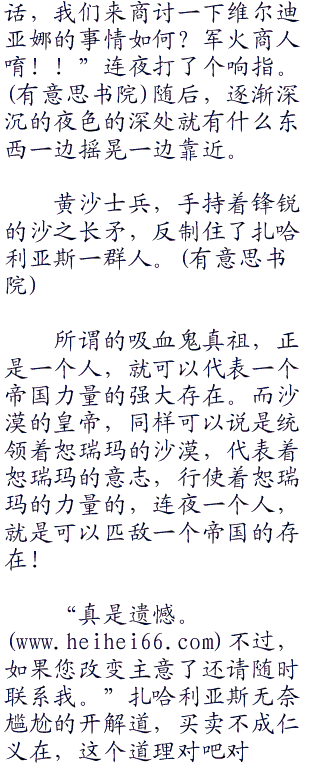 话，我们来商讨一下维尔迪
亚娜的事情如何？军火商人
唷！！”连夜打了个响指。
(有意思书院)随后，逐渐深
沉的夜色的深处就有什么东
西一边摇晃一边靠近。
黄沙士兵，手持着锋锐
的沙之长矛，反制住了扎哈
利亚斯一群人。(有意思书
院)
所谓的吸血鬼真祖，正
是一个人，就可以代表一个
帝国力量的强大存在。而沙
漠的皇帝，同样可以说是统
领着恕瑞玛的沙漠，代表着
恕瑞玛的意志，行使着恕瑞
玛的力量的，连夜一个人，
就是可以匹敌一个帝国的存
在！
“真是遗憾。
(www.heihei66.com)不过，
如果您改变主意了还请随时
联系我。”扎哈利亚斯无奈
尴尬的开解道，买卖不成仁
义在，这个道理对吧对